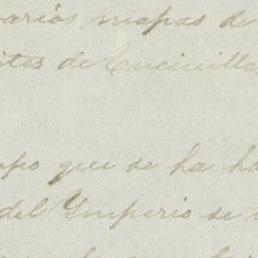 varios mapas de
ites de Encinillas
po que se ha ha
del Ymperio se